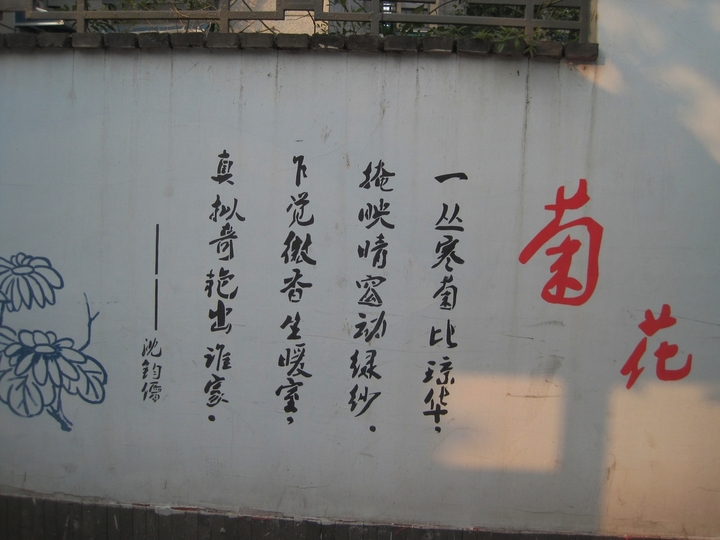 菊花
一丛寒菊比琼华,
掩映晴窗动绿纱.
乍觉微香生暖室,
真拟奇艳出谁家.
——沈钧儒